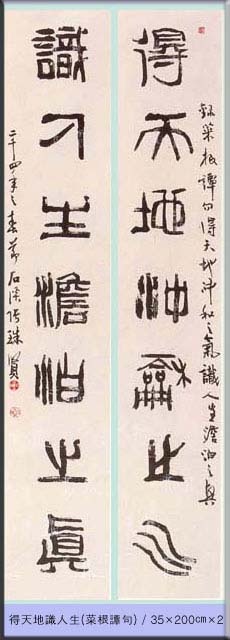 錄菜根譚句得天地沖和之氣識人生澹泊之真
得天地沖龢之气
識人生澹泊之眞
二千四年之春節石 珠賢
得天地識人生(菜根譚句) / 35×200cm×2